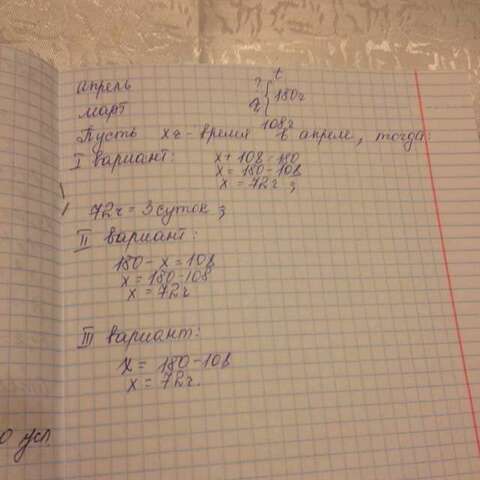 t
апрель ? } 180ч
март ? 108ч
Пусть х ч - время в апреле, тогда:
I вариант: х + 108 = 180
х = 180 - 108
х = 72ч;
72ч = 3 суток;
II вариант:
180 - х = 108
х = 180 - 108
х = 72ч
III вариант:
х = 180 - 108
х = 72ч.